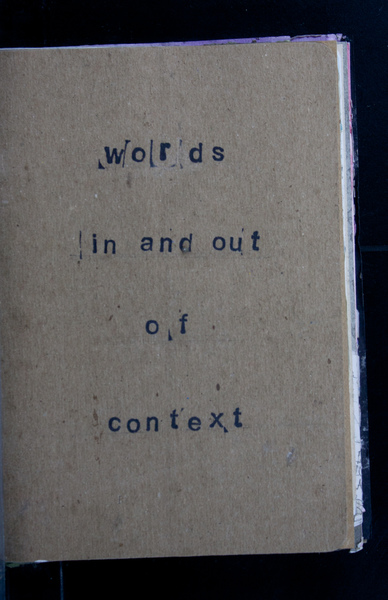 words
in and out
of
context